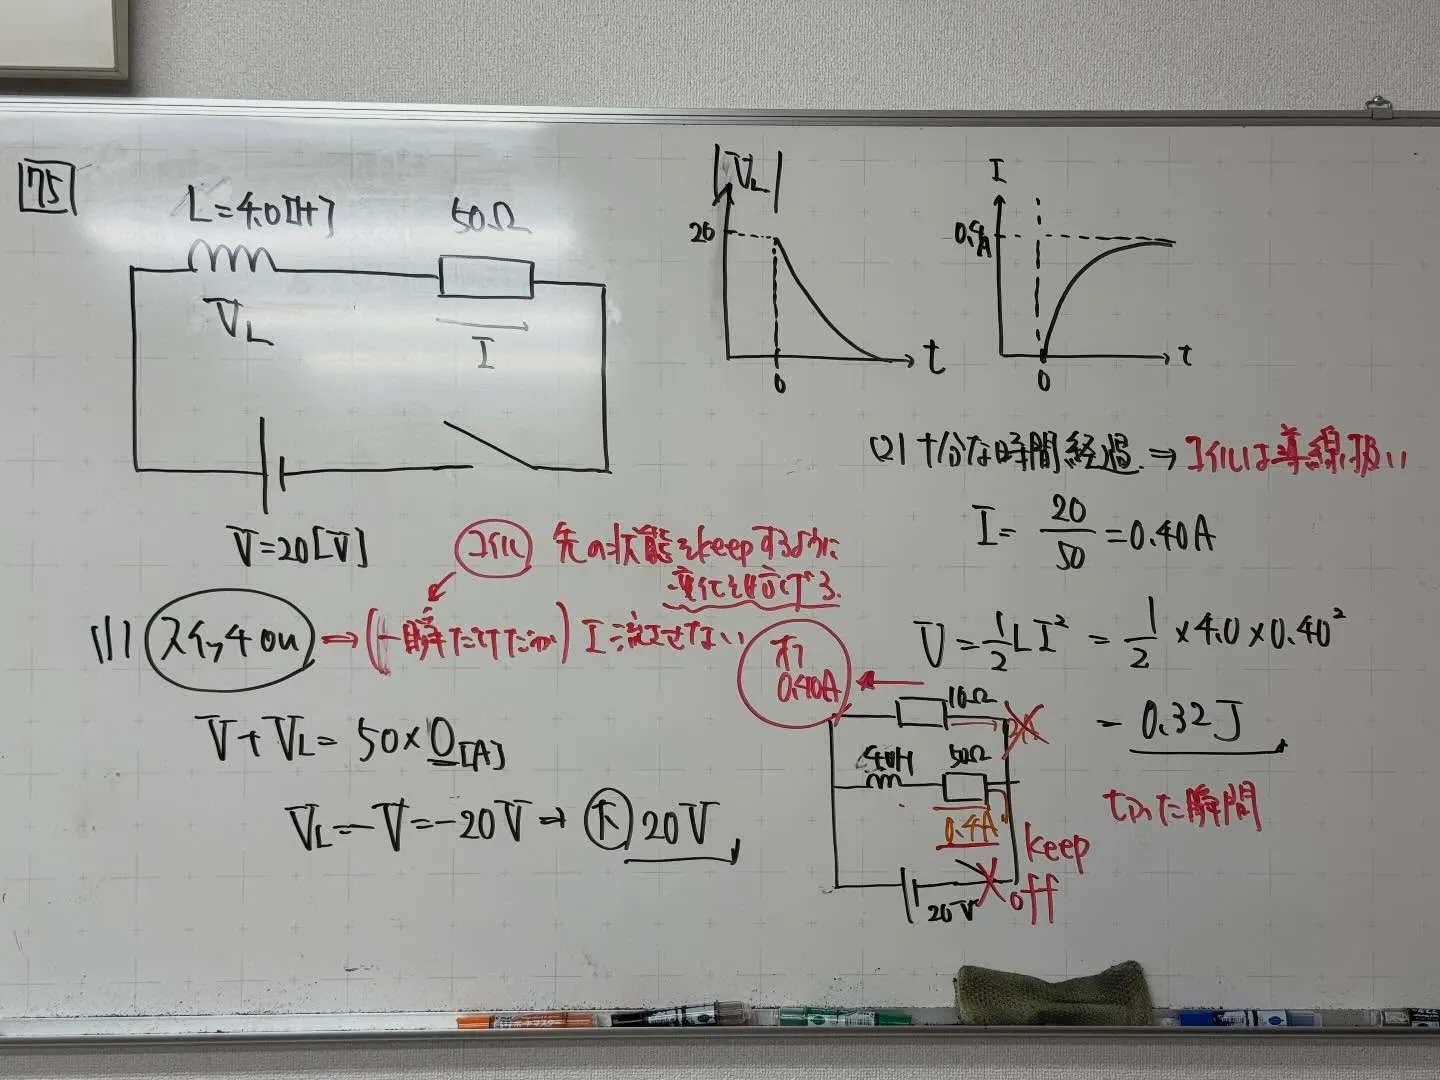 75
L=4.0[H]
50Ω
V_L
I
V=20[V]
|V_L|
20
0
t
I
0.4A
0
t
(1) スイッチon ⇒ (一瞬だけだが) I流させない
コイル 先の状態をkeepするように
変化を妨げる.
V+V_L=50×0[A]
V_L=-V=-20V ⇒ 大 20V
(2) 十分な時間経過 ⇒ コイルは導線扱い
I= 20/50 =0.40A
U=1/2 LI²=1/2×4.0×0.40²
=0.32J
0.40A
10Ω
4.0H
50Ω
0.4A
20V
keep
off
切った瞬間